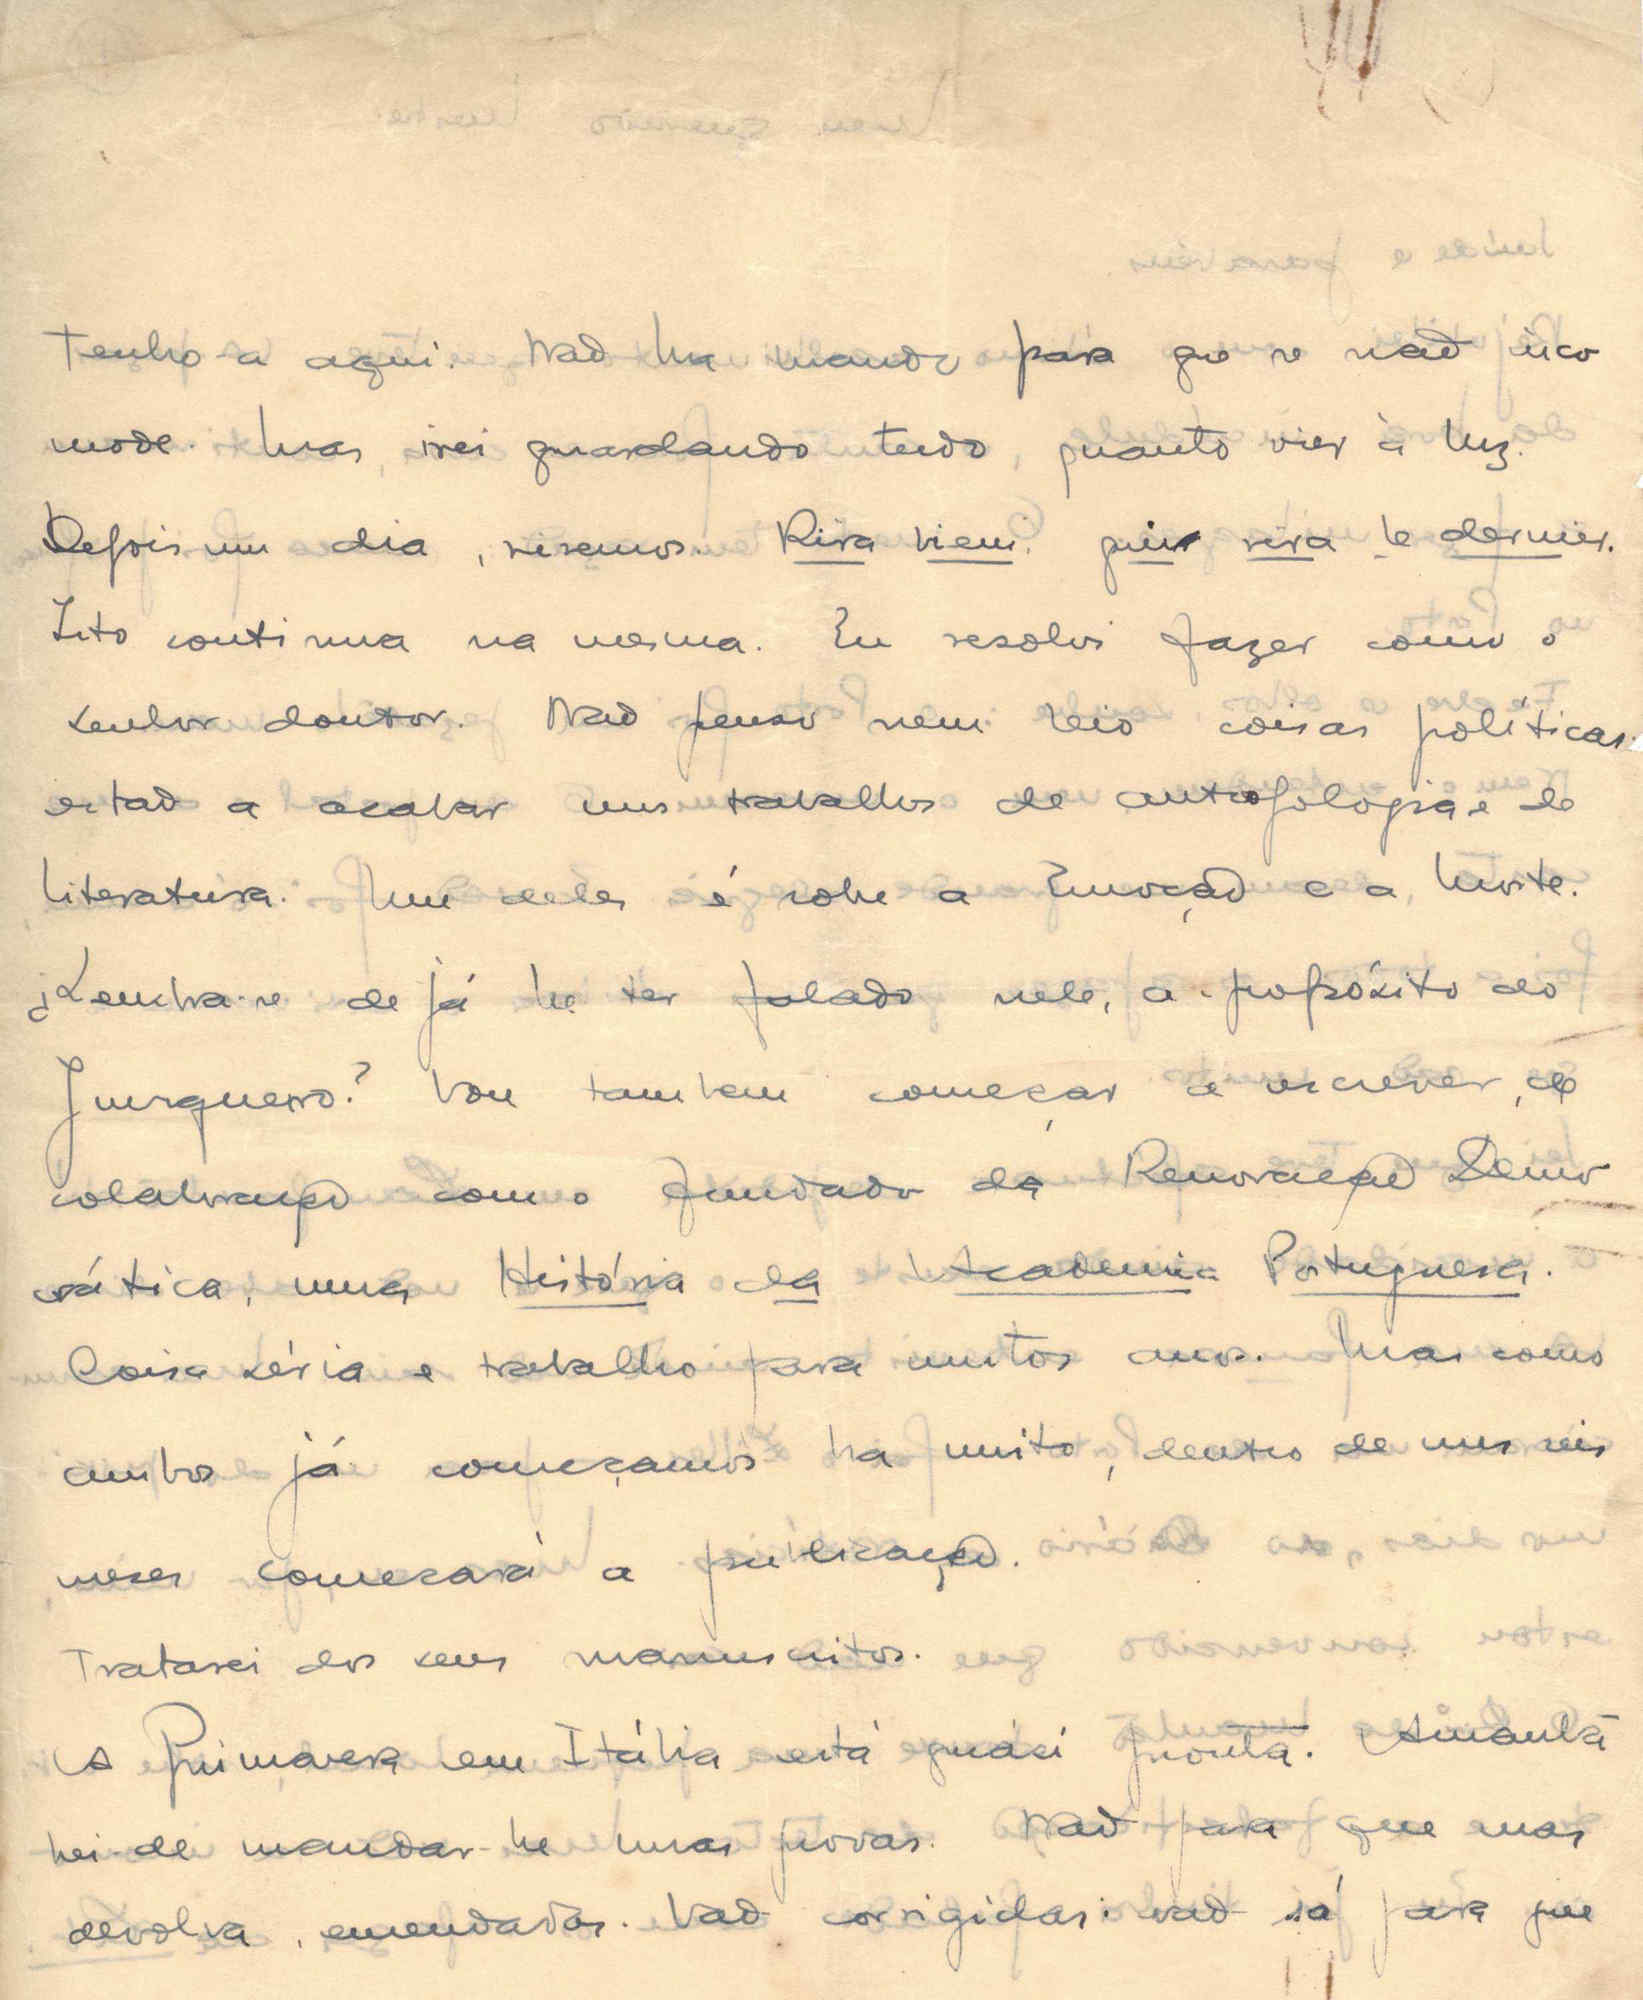 Tenho-a aqui. Não lha mando para que se não inco
mode. Mas, irei guardando tudo, quanto vier à luz.
Depois um dia, riremos. Rira bien qui rira le dernier.
Isto continua na mesma. Eu resolvi fazer como o
senhor doutor. Não penso nem leio coisas políticas.
estão a acabar uns trabalhos de antropologia e de
literatura. Um deles é sobre a Emoção e a Morte.
¿Lembra-se de já lhe ter falado nele, a-propósito do
Junqueiro? Vou tambem começar a escrever, de
colaboração com o fundador da Renovação Demo
crática, uma História da Academia Portuguesa.
Coisa séria e trabalho para muitos anos. Mas como
ambos já começamos ha muito, dentro de uns seis
meses começará a publicação.
Tratarei dos seus manuscritos.
A Primavera em Itália está quási pronta. Amanhã
hei-de mandar-lhe umas provas. Não para que mas
devolva, emendadas. Vão corrigidas. vão só para que